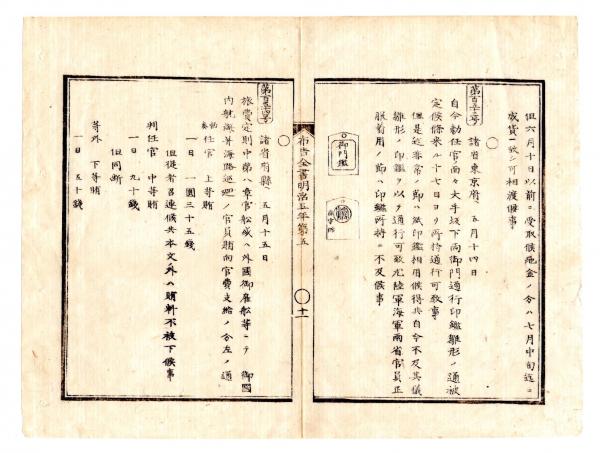 但六月十日以前ニ受取候地金ノ分ハ七月中旬迄ニ
成貨一致シ可相渡候事
諸省東京府 五月十四日
自今勅任官ノ面々大手坂下両御門通行印鑑雛形ノ通被
定候條来ル十七日ヨリ所持通行可致事
但是迄番

ノ節ハ紙印鑑相用候得共自今不及其儀
雛形ノ印鑑ヲ以テ通行可致尤陸軍海軍両省官員正
服着用ノ節ハ印鑑所持ニ不及候事
御門鑑
布告全書明治五年第五
十一
諸省府縣 五月十五日
旅費定則中第八章官ノ松或ハ外國御雇船等ニテ御國
内航海并海路巡廻ノ官員賄向官費支給ノ分左ノ通
勅奏任官 上等賄
一日 一圓三十五錢
但従者召連候共本文ノ外ハ賄料不被下候事
判任官 中等賄
一日 九十錢
但同断
等外 下等賄
一日 五十錢